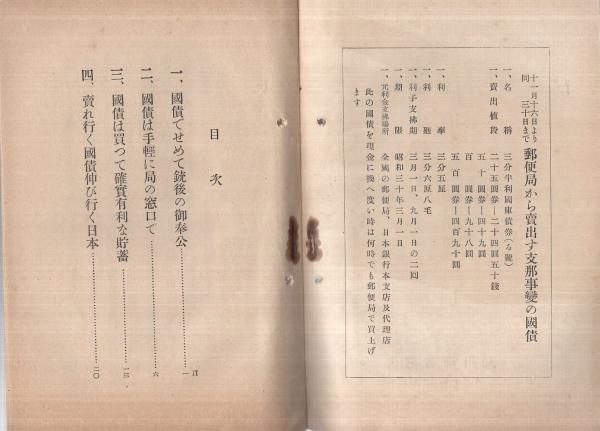 十一月十六日より
同　三十日まで
郵便局から賣出す支那事變の國債
一、名稱　三分半利國庫債券（る號）
一、賣出値段　二十五圓券―二十四圓五十錢
五十圓券―四十九圓
百圓券―九十八圓
五百圓券―四百九十圓
一、利率　三分五厘
一、利廻　三分六厘八毛
一、利子支拂期　三月一日、九月一日の二囘
一、期限　昭和三十年三月一日
一、元利金支拂場所　全國の郵便局、日本銀行本支店及代理店
此の國債を現金に換へ度い時は何時でも郵便局で買上げ
ます
目次
一、國債でせめて銃後の御奉公…………一頁
二、國債は手輕に局の窓口で…………六
三、國債は買つて確實有利な貯蓄…………一三
四、賣れ行く國債伸び行く日本…………二〇